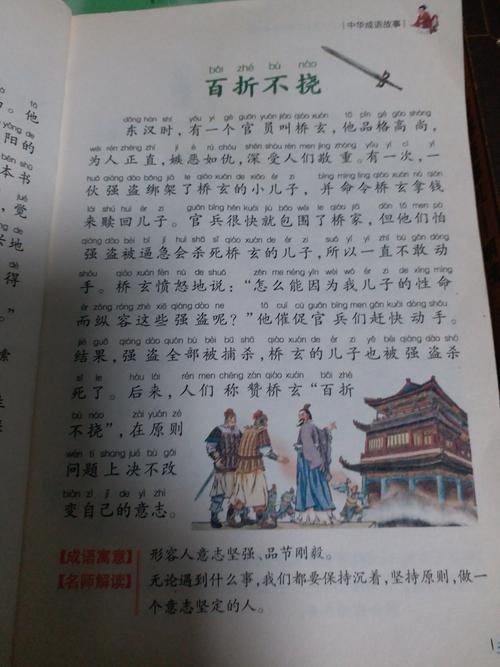 中华成语故事
bǎi zhé bù náo
百折不挠
dōng hàn shí yǒu yí gè guān yuán jiào qiáo xuán tā pǐn gé gāo shàng
东汉时，有一个官员叫桥玄，他品格高尚，
wéi rén zhèng zhí jí è rú chóu shēn shòu rén men jìng zhòng yǒu yí cì yì
为人正直，嫉恶如仇，深受人们敬重。有一次，一
huǒ qiáng dào bǎng jià le qiáo xuán de xiǎo ér zi bìng mìng lìng qiáo xuán ná qián
伙强盗绑架了桥玄的小儿子，并命令桥玄拿钱
lái shú huí ér zi guān bīng hěn kuài jiù bāo wéi le qiáo jiā dàn tā men pà
来赎回儿子。官兵很快就包围了桥家，但他们怕
qiáng dào bèi bī jí huì shā sǐ qiáo xuán de ér zi suǒ yǐ yì zhí bù gǎn dòng
强盗被逼急会杀死桥玄的儿子，所以一直不敢动
shǒu qiáo xuán fèn nù de shuō zěn me néng yīn wèi wǒ ér zi de xìng mìng
手。桥玄愤怒地说：“怎么能因为我儿子的性命
ér zòng róng zhè xiē qiáng dào ne tā cuī cù guān bīng men gǎn kuài dòng shǒu
而纵容这些强盗呢？”他催促官兵们赶快动手。
jié guǒ qiáng dào quán bù bèi bǔ shā qiáo xuán de ér zi yě bèi qiáng dào shā
结果，强盗全部被捕杀，桥玄的儿子也被强盗杀
sǐ le hòu lái rén men chēng zàn qiáo xuán bǎi zhé
死了。后来，人们称赞桥玄“百折
bù náo zài yuán zé
不挠”，在原则
wèn tí shang jué bù gǎi
问题上决不改
biàn zì jǐ de yì zhì
变自己的意志。
【成语寓意】 形容人意志坚强、品节刚毅。
【名师解读】 无论遇到什么事，我们都要保持沉着，坚持原则，做一
个意志坚定的人。